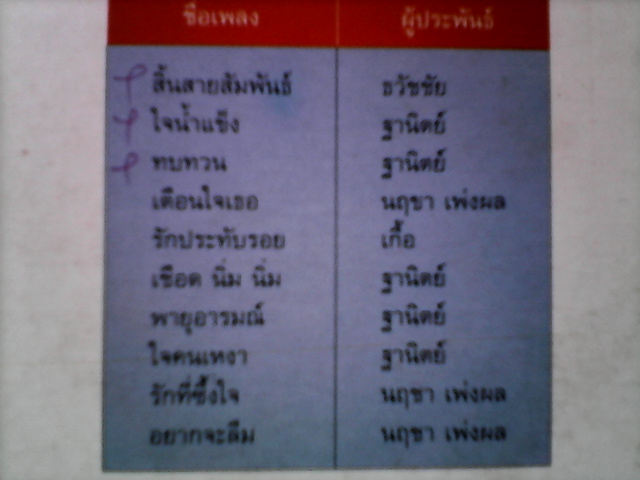 ชื่อเพลง ผู้ประพันธ์
สิ้นสายสัมพันธ์ ธวัชชัย
ใจน้ำแข็ง ฐานิตย์
ทบทวน ฐานิตย์
เตือนใจเธอ นฤชา เพ่งผล
รักประทับรอย เกื้อ
เชือด นิ่ม นิ่ม ฐานิตย์
พายุอารมณ์ ฐานิตย์
ใจคนเหงา ฐานิตย์
รักที่ซึ้งใจ นฤชา เพ่งผล
อยากจะลืม นฤชา เพ่งผล